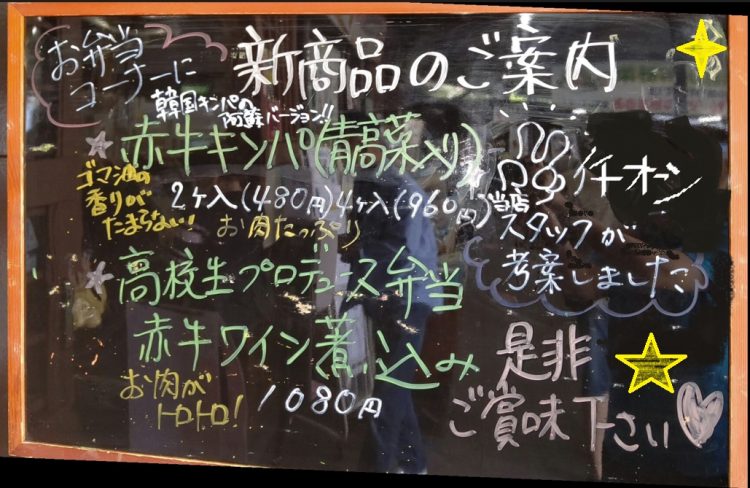 お弁当
コーナーに
新商品のご案内
韓国キンパの
阿蘇バージョン!!
赤牛キンパ(青高菜入り)
ゴマ油の
香りが
たまらない!
2ケ入(480円)4ケ入(960円)
お肉たっぷり
イチオシ
当店
スタッフが
考案しました
高校生プロデュース弁当
赤牛ワイン煮込み
お肉が
トロトロ!
1080円
是非
ご賞味下さい